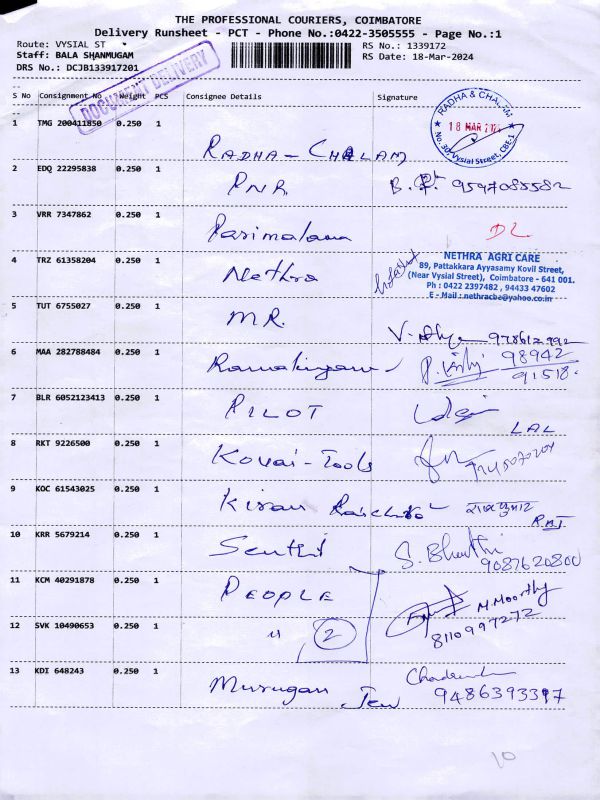 THE PROFESSIONAL COURIERS, COIMBATORE
Delivery Runsheet - PCT - Phone No.:0422-3505555 - Page No.:1
Route: VYSIAL ST
RS No.: 1339172
Staff: BALA SHANMUGAM
RS Date: 18-Mar-2024
DRS No.: DCJB133917201
DOCUMENT DELIVERY
S No Consignment No Weight PCS Consignee Details Signature
1 TMG 200411850 0.250 1
RADHA & CHALAM
18 MAR 2024
No.30, Vysial Street, CBE-1
RADHA - CHALAM
2 EDQ 22295838 0.250 1
PNR B. 9597085582
3 VRR 7347862 0.250 1
Parimalam DL
4 TRZ 61358204 0.250 1
Nethra
NETHRA AGRI CARE
89, Pattakkara Ayyasamy Kovil Street,
(Near Vysial Street), Coimbatore - 641 001.
Ph : 0422 2397482 , 94433 47602
E - Mail : nethracbe@yahoo.co.in
5 TUT 6755027 0.250 1
MR.
6 MAA 282788484 0.250 1
Ramalingam 98942
91518
7 BLR 6052123413 0.250 1
PILOT
LAL
8 RKT 9226500 0.250 1
Kovai - Tools
9 KOC 61543025 0.250 1
Kiran राजकुमार
RAJ
10 KRR 5679214 0.250 1
Senthil S. Bharathi
9087620800
11 KCM 40291878 0.250 1
PEOPLE M. Moorthy
8110997272
12 SVK 10490653 0.250 1
" 2
13 KDI 648243 0.250 1
Murugan Jew
9486393397
10